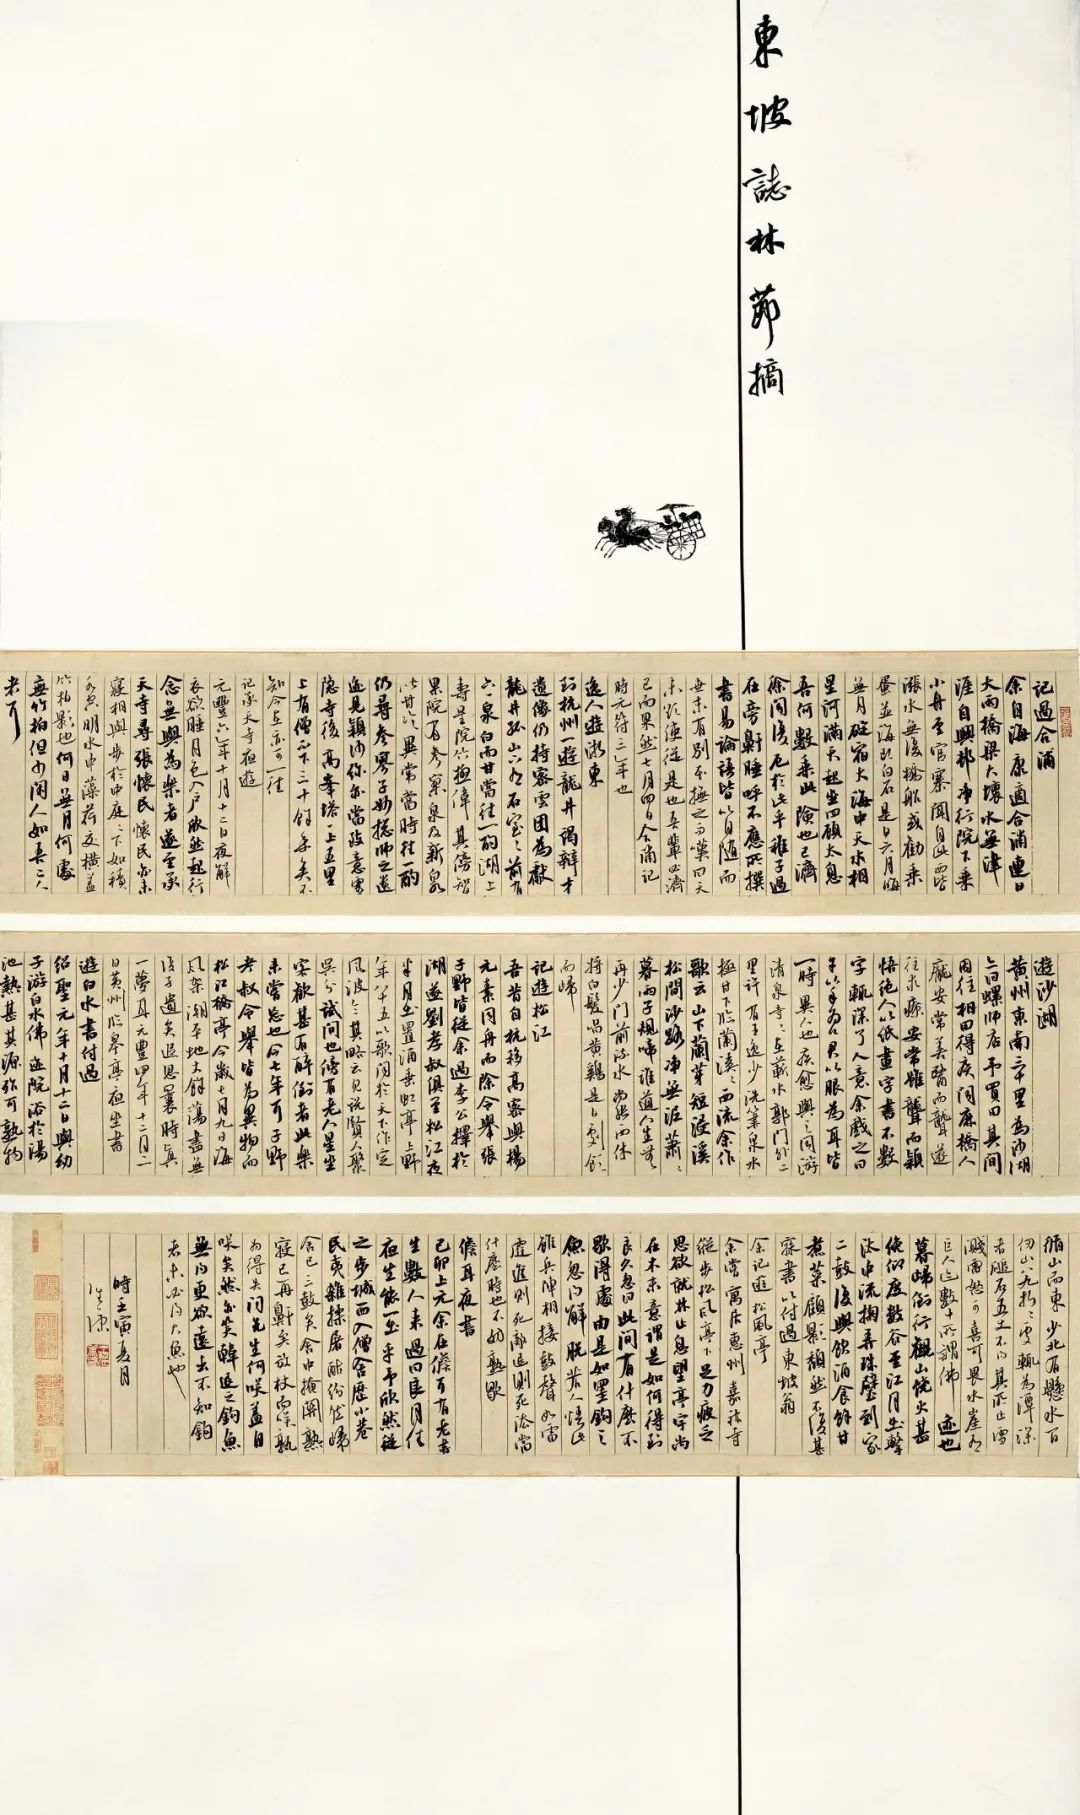 東坡誌林節摘
記過合浦
余自海康適合浦連日
大雨橋梁大壞水無津
涯自興郡凈行院下乘
小舟至官寨聞自此而皆
漲水無復橋船或勸乘
蜑並海即白石是日六月晦
無月碇宿大海中天水相
星河滿天起坐四顧太息
吾何數乘此險也已濟
徐聞復厄於此乎稚子過
在旁鼾睡呼不應所撰
書易論語皆以自隨而
世未有別本撫之而嘆曰天
未欲使從是也吾輩必濟
已而果然七月四日合浦記
時元符三年也
逸人遊浙東
到杭州一遊龍井謁辯才
遺像仍持密雲團為獻
龍井孤山下有石室々前有
六一泉白而甘當往一酌湖上
壽星院竹極偉其傍智
果院有參寥泉及新泉
皆甘冷異常當時往一酌
仍尋參寥子妙揔師之遺
迹見穎沙彌亦當致意靈
隱寺後高峯塔一上五里
上有僧不下三十餘年矣不
知今在亦可一往
記承天寺夜遊
元豐六年十月十二日夜解
衣欲睡月色入戶欣然起行
念無與為樂者遂至承
天寺尋張懷民懷民亦未
寢相與步於中庭々下如積
水空明水中藻荇交橫蓋
竹柏影也何日無月何處
無竹柏但少閑人如吾二人
者耳
遊沙湖
黃州東南三十里為沙湖
亦曰螺師店予買田其間
因往相田得疾聞麻橋人
龐安常善醫而聾遂
往求療安常雖聾而穎
悟絕人以紙畫字書不數
字輒深了人意余戲之曰
予以手為口君以眼為耳皆
一時異人也疾愈與之同游
清泉寺々在蘄水郭門外二
里許有王逸少洗筆泉水
極甘下臨蘭溪々西流余作
歌云山下蘭芽短浸溪
松間沙路凈無泥蕭々
暮雨子規啼誰道人生無
再少門前流水尚能西休
將白髮唱黃鷄是日劇飲
而歸
記遊松江
吾昔自杭移高密與楊
元素同舟而陳令舉張
子野皆從余過李公擇於
湖遂劉孝叔俱至松江夜
半月出置酒垂虹亭上野
年八十五以歌詞於天下作定
風波令其略云見說賢人聚
吳分試問也傍有老人星坐
客歡甚有醉倒者此樂
未嘗忘也今七年耳子野
孝叔令舉皆為異物而
松江橋亭今歲七月九日海
風架潮平地丈餘蕩盡無
復子遺矣追思曩時真
一夢耳元豐四年十二月二
日黃州臨皋亭夜坐書
遊白水書付過
紹聖元年十月十二日與幼
子游白水佛迹院浴於湯
池熱甚其源殆可熟物
循山而東少北有懸水百
仞山八九折々處輒為潭深
者縋石五丈不得其所止雪
濺雷怒可喜可畏水崖有
巨人迹數十所謂佛迹也
暮歸倒行觀山燒火甚
俛仰度數谷至江月出擊
汰中流掬弄珠璧到家
二鼓復與飲酒食餘甘
煮菜顧影頹然不復甚
寐書以付過東坡翁
余記遊松風亭
余嘗寓居惠州嘉祐寺
縱步松風亭下足力疲乏
思欲就林止息望亭宇尚
在木末意謂是如何得到
良久忽曰此間有什麼不
歇得處由是如罣鉤之
魚忽得解脫若人悟此
雖兵陣相接鼓聲如雷
霆進則死敵退則死法當
什麼時也不妨熟歇
儋耳夜書
己卯上元余在儋耳有老書
生數人來過曰良月佳
夜先生能一出乎予欣然從
之步城西入僧舍歷小巷
民夷雜揉屠酤紛然歸
舍已三鼓矣舍中掩關熟
寢已再鼾矣放杖而笑孰
為得失問先生何咲蓋自
咲矣然亦笑韓退之釣魚
無得更欲遠去不知釣
者未必得大魚也
時壬寅夏月